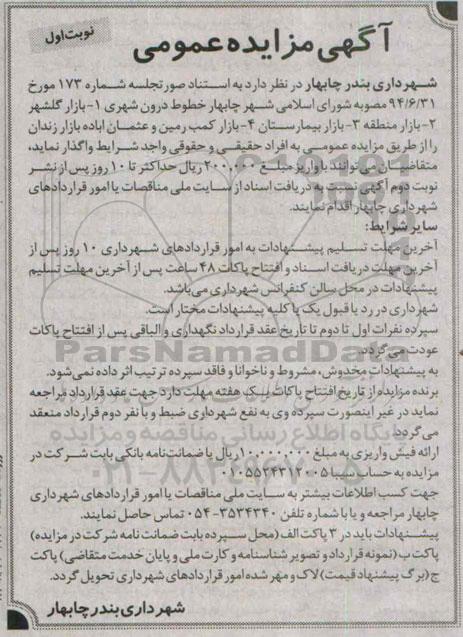 نوبت اول
آگهی مزایده عمومی
شهرداری بندر چابهار در نظر دارد به استناد صورتجلسه شماره ۱۷۳ مورخ
۹۴/۶/۳۱ مصوبه شورای اسلامی شهر چابهار خطوط درون شهری ۱-بازار گلشهر
۲-بازار منطقه ۳-بازار بیمارستان ۴-بازار کمب رمین و عثمان اباده بازار زندان
را از طریق مزایده عمومی به افراد حقیقی و حقوقی واجد شرایط واگذار نماید،
متقاضیان می‌توانند با واریز مبلغ ۲۰۰,۰۰۰ ریال حداکثر تا ۱۰ روز پس از نشر
نوبت دوم آگهی نسبت به دریافت اسناد از سایت ملی مناقصات یا امور قراردادهای
شهرداری چابهار اقدام نمایند.
سایر شرایط:
آخرین مهلت تسلیم پیشنهادات به امور قراردادهای شهرداری ۱۰ روز پس از
آخرین مهلت دریافت اسناد و افتتاح پاکات ۴۸ ساعت پس از آخرین مهلت تسلیم
پیشنهادات در محل سالن کنفرانس شهرداری می‌باشد.
شهرداری در رد یا قبول یک یا کلیه پیشنهادات مختار است.
سپرده نفرات اول تا دوم تا تاریخ عقد قرارداد نگهداری و الباقی پس از افتتاح پاکات
عودت می‌گردد.
به پیشنهادات مخدوش، مشروط و ناخوانا و فاقد سپرده ترتیب اثر داده نمی‌شود.
برنده مزایده از تاریخ افتتاح پاکات یک هفته مهلت دارد جهت عقد قرارداد مراجعه
نماید در غیر اینصورت سپرده وی به نفع شهرداری ضبط و با نفر دوم قرارداد منعقد
می‌گردد.
ارائه فیش واریزی به مبلغ ۱۰,۰۰۰,۰۰۰ ریال یا ضمانت‌نامه بانکی بابت شرکت در
مزایده به حساب سیبا ۰۱۰۵۵۲۴۳۱۲۰۰۵
جهت کسب اطلاعات بیشتر به سایت ملی مناقصات یا امور قراردادهای شهرداری
چابهار مراجعه و یا با شماره تلفن ۳۵۳۴۳۴۰-۰۵۴ تماس حاصل نمایند.
پیشنهادات باید در ۳ پاکت الف (محل سپرده بابت ضمانت نامه شرکت در مزایده)
پاکت ب (نمونه قرارداد و تصویر شناسنامه و کارت ملی و پایان خدمت متقاضی) پاکت
ج (برگ پیشنهاد قیمت) لاک و مهر شده امور قراردادهای شهرداری تحویل گردد.
شهرداری بندر چابهار
ParsNamadData
پایگاه اطلاع رسانی مناقصه و مزایده